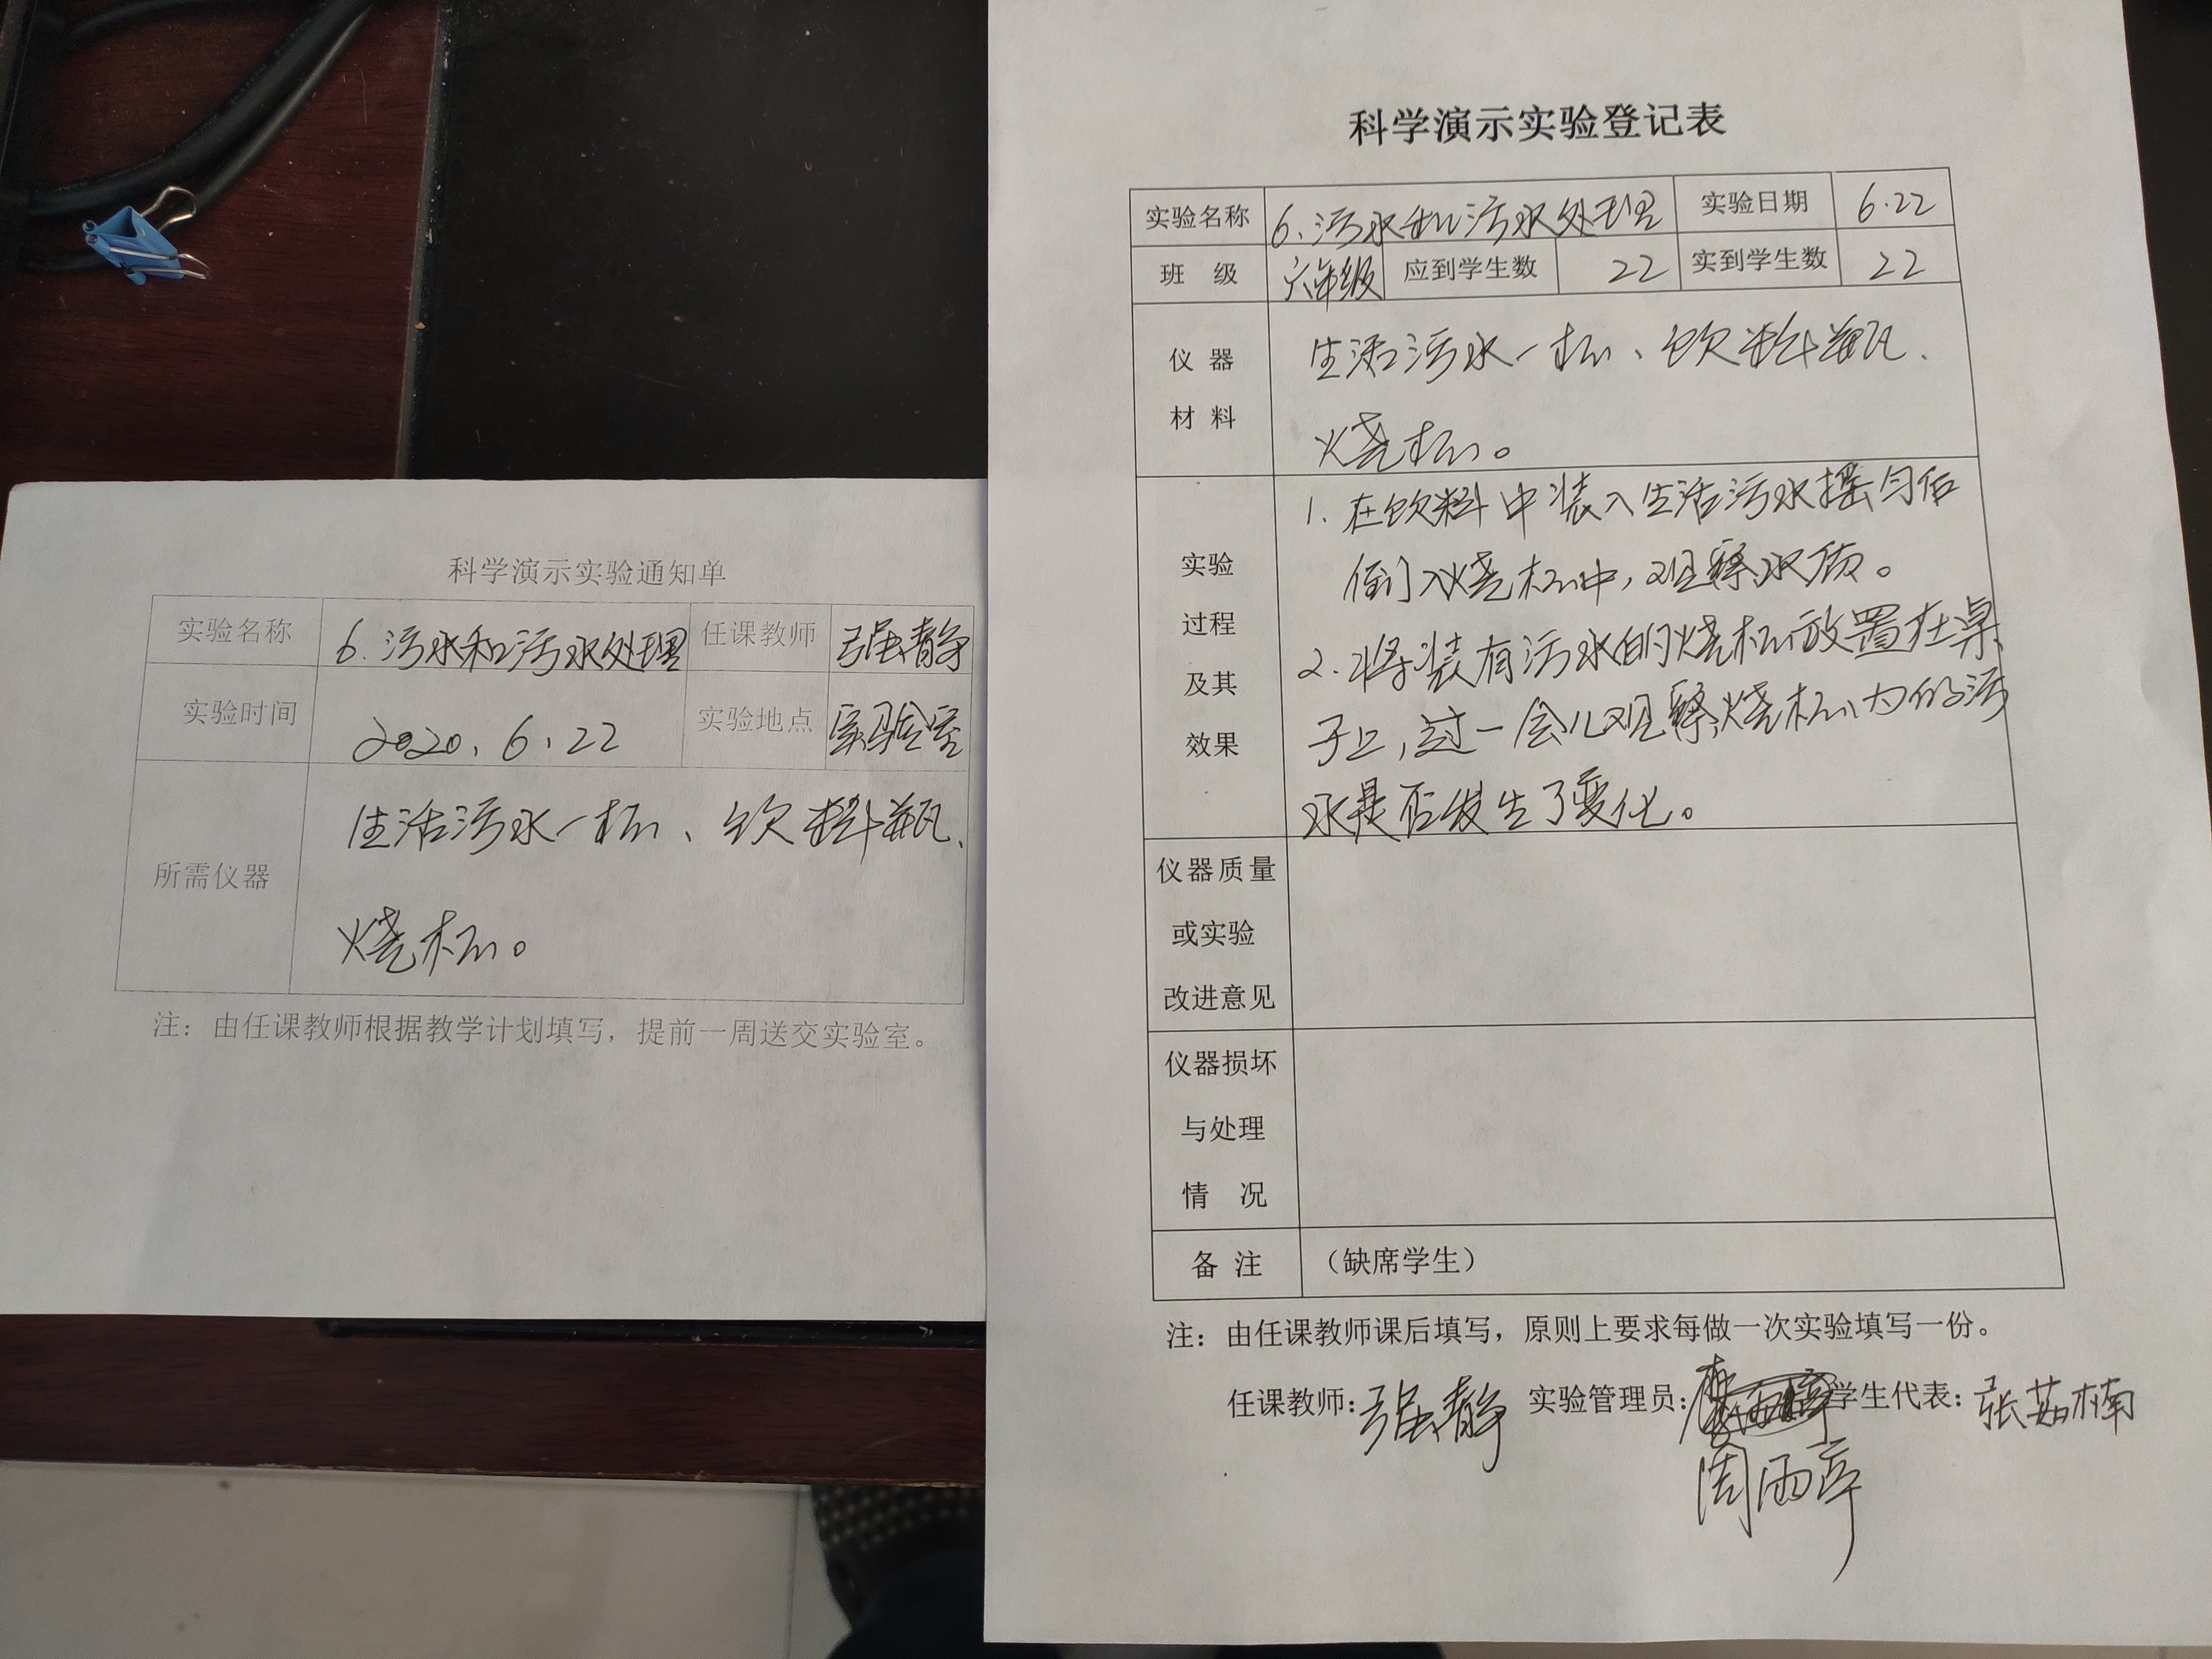 科学演示实验通知单
实验名称 6.污水和污水处理 任课教师 强静
实验时间 2020.6.22 实验地点 实验室
所需仪器
生活污水一杯、饮料瓶、
烧杯。
注：由任课教师根据教学计划填写，提前一周送交实验室。
科学演示实验登记表
实验名称 6、污水和污水处理 实验日期 6.22
班 级 六年级 应到学生数 22 实到学生数 22
仪 器
材 料
生活污水一杯、饮料瓶、
烧杯。
实验
过程
及其
效果
1.在饮料中装入生活污水摇匀后
倒入烧杯中,观察水质。
2.将装有污水的烧杯放置在桌
子上,过一会儿观察烧杯内的污
水是否发生了变化。
仪器质量
或实验
改进意见
仪器损坏
与处理
情 况
备 注 （缺席学生）
注：由任课教师课后填写，原则上要求每做一次实验填写一份。
任课教师：强静 实验管理员： 学生代表：张茹楠
周雨